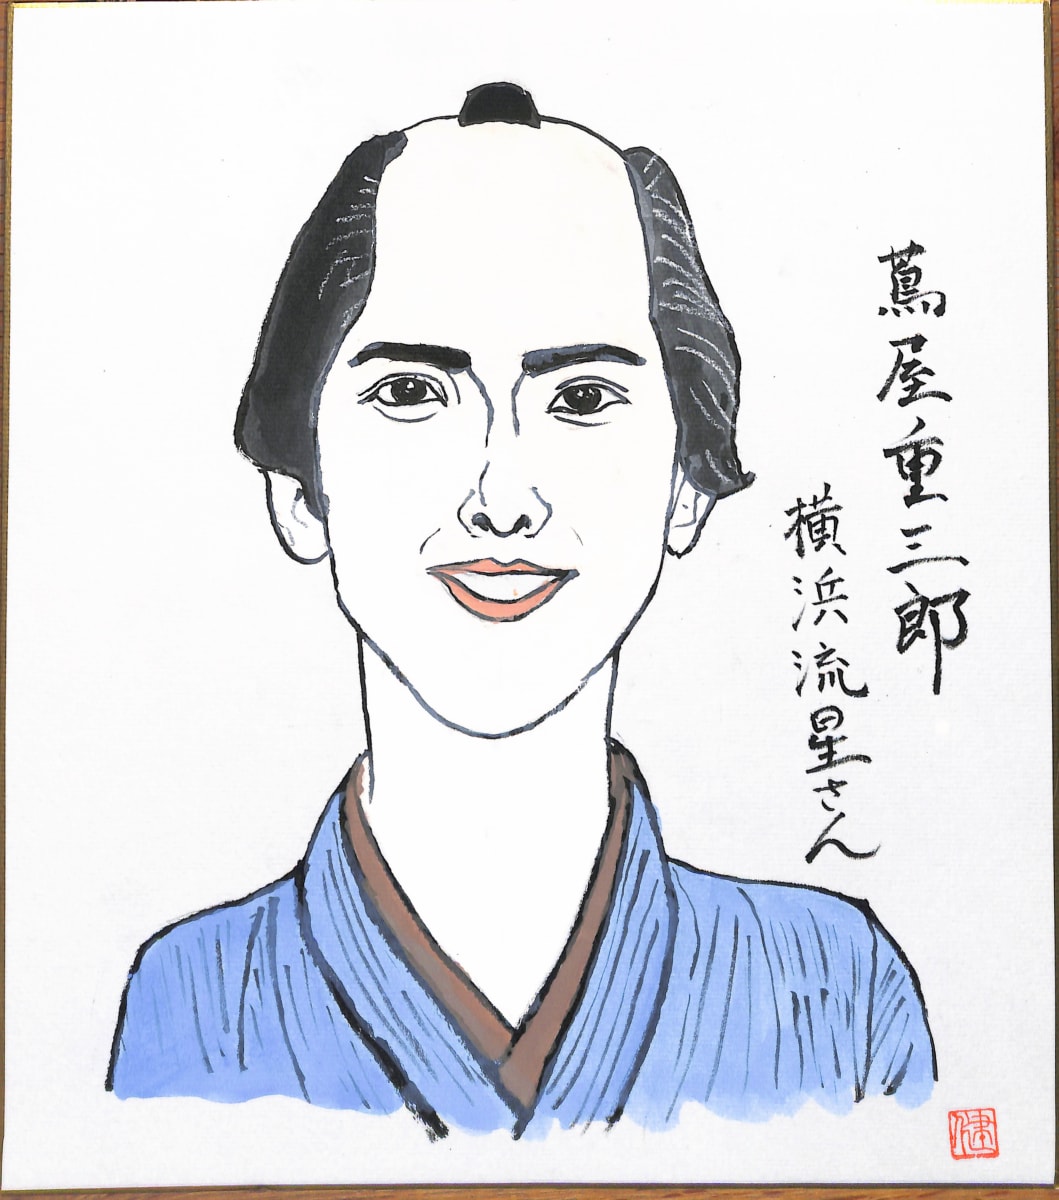 蔦屋重三郎
横浜流星さん
健